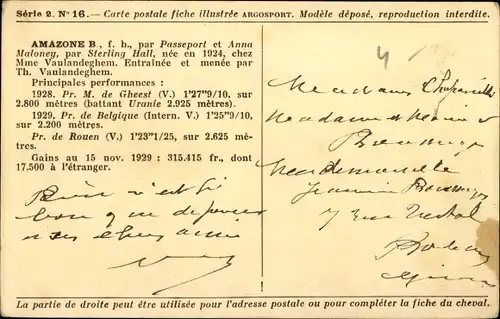 Série 2. N° 16. — Carte postale fiche illustrée ARGOSPORT. Modèle déposé, reproduction interdite.
AMAZONE B., f. b., par Passeport et Anna
Maloney, par Sterling Hall, née en 1924, chez
Mme Vaulandeghem. Entraînée et menée par
Th. Vaulandeghem.
Principales performances :
1928. Pr. M. de Gheest (V.) 1'27"9/10, sur
2.800 mètres (battant Uranie 2.925 mètres).
1929. Pr. de Belgique (Intern. V.) 1'25"9/10,
sur 2.200 mètres.
Pr. de Rouen (V.) 1'23"1/25, sur 2.625 mè-
tres.
Gains au 15 nov. 1929 : 315.415 fr., dont
17.500 à l'étranger.
Rien n'est si
bon que de penser
a ses chers amis
4
Mesdames
Madame et
Mademoiselle
7 rue
Bordeaux
La partie de droite peut être utilisée pour l'adresse postale ou pour compléter la fiche du cheval.